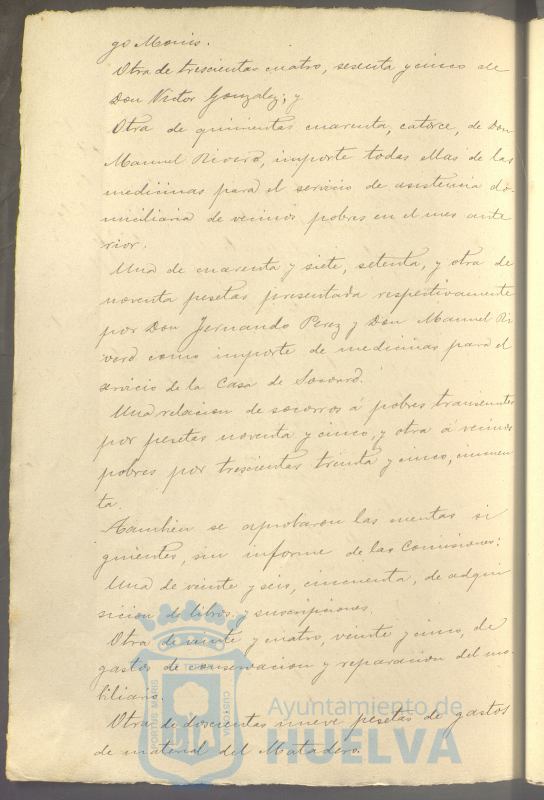 go Monis.
Otra de trescientas cuatro, sesenta y cinco de
Don Victor Gonzalez; y
Otra de quinientas cuarenta, catorce, de Don
Manuel Rivero, importe todas ellas de las
medicinas para el servicio de asistencia do-
miciliaria de vecinos pobres en el mes ante
rior.
Una de cuarenta y siete, setenta, y otra de
noventa pesetas presentada respectivamente
por Don Fernando Perez y Don Manuel Ri-
vero como importe de medicinas para el
servicio de la Casa de Socorro.
Una relacion de socorros á pobres transeuntes
por pesetas noventa y cinco, y otra á vecinos
pobres por trescientas treinta y cinco, cincuen
ta.
Tambien se aprobaron las cuentas si
guientes, sin informe de las Comisiones:
Una de veinte y seis, cincuenta, de adqui
sicion de libros y suscripciones.
Otra de veinte y cuatro, veinte y cinco, de
gastos de conservacion y reparacion del mo-
biliario.
Otra de doscientas nueve pesetas de gastos
de material del Matadero.
Ayuntamiento de
HUELVA
PORTUS MARIS ET TERRAE CUSTODIA